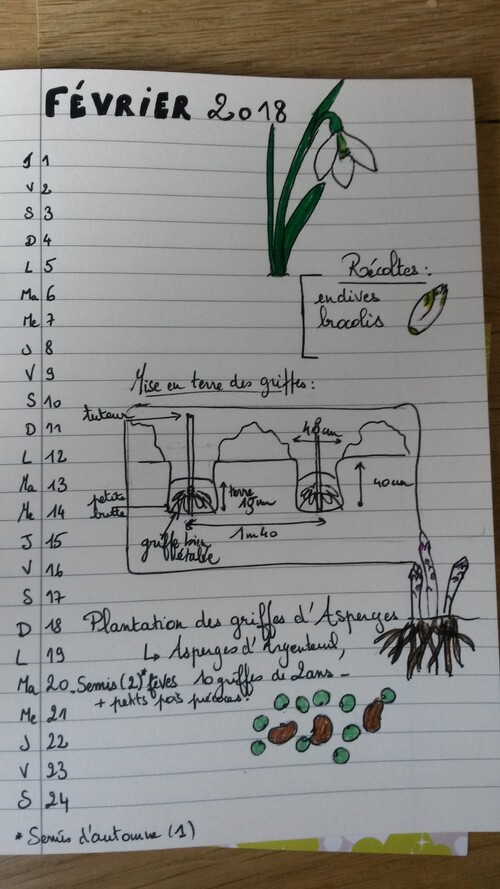 FÉVRIER 2018
J 1
V 2
S 3
D 4
L 5
Récoltes :
Ma 6
endives
Me 7
brocolis
J 8
V 9
Mise en terre des griffes :
S 10
tuteur
D 11
40cm
L 12
Ma 13
40cm
petite
butte
terre
15cm
Me 14
1m40
J 15
griffe bien
étalée
V 16
S 17
D 18 Plantation des griffes d'Asperges
L 19 ↳ Asperges d'Argenteuil,
Ma 20 - Semis (2)* fèves 10 griffes de 2ans -
+ petits pois précoces.
Me 21
J 22
V 23
S 24
* Semis d'automne (1)